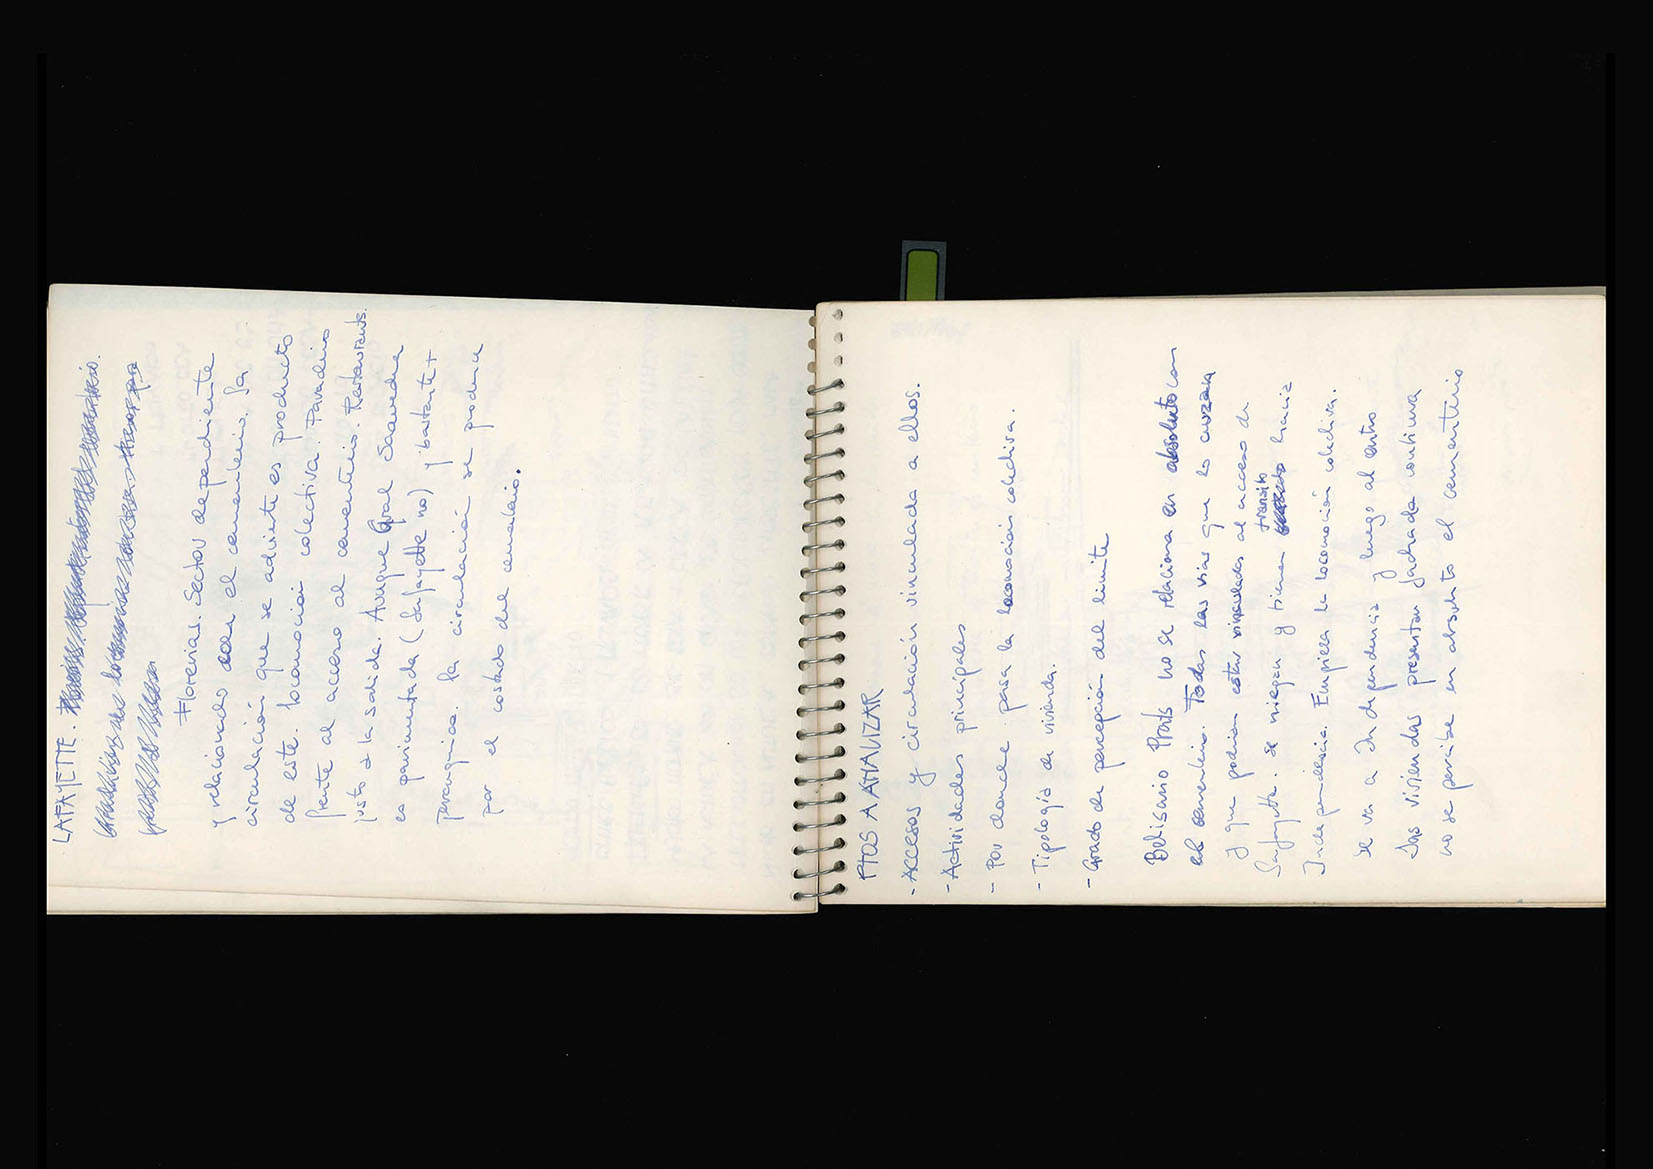 LAFAYETTE.
Florerias. Sector dependiente
y relacionado con el cementerio. La
circulación que se advierte es producto
de este. locomoción colectiva. Paradero
frente al acceso al cementerio. Restaurants.
justo a la salida. Aunque Gral Saavedra
es pavimentada (Lafayette no) y bastante +
peranquica. la circulación se produce
por el costado del cementerio.
PTOS A ANALIZAR
- Accesos y circulación vinculada a ellos.
- Actividades principales
- Por donde pasa la locomoción colectiva.
- Tipología de vivienda.
- Grado de percepción del limite
Belisario Prats no se relaciona en absoluto con
el cementerio. Todas las vias que lo cruzan
y que podrian estar vinculadas al acceso de
Lafayette. se niegan y tienen transito hacia
Independencia. Empieza la locomoción colectiva.
se va a Independencia y luego al centro
Las viviendas presentan fachada continua
no se percibe en absoluto el cementerio